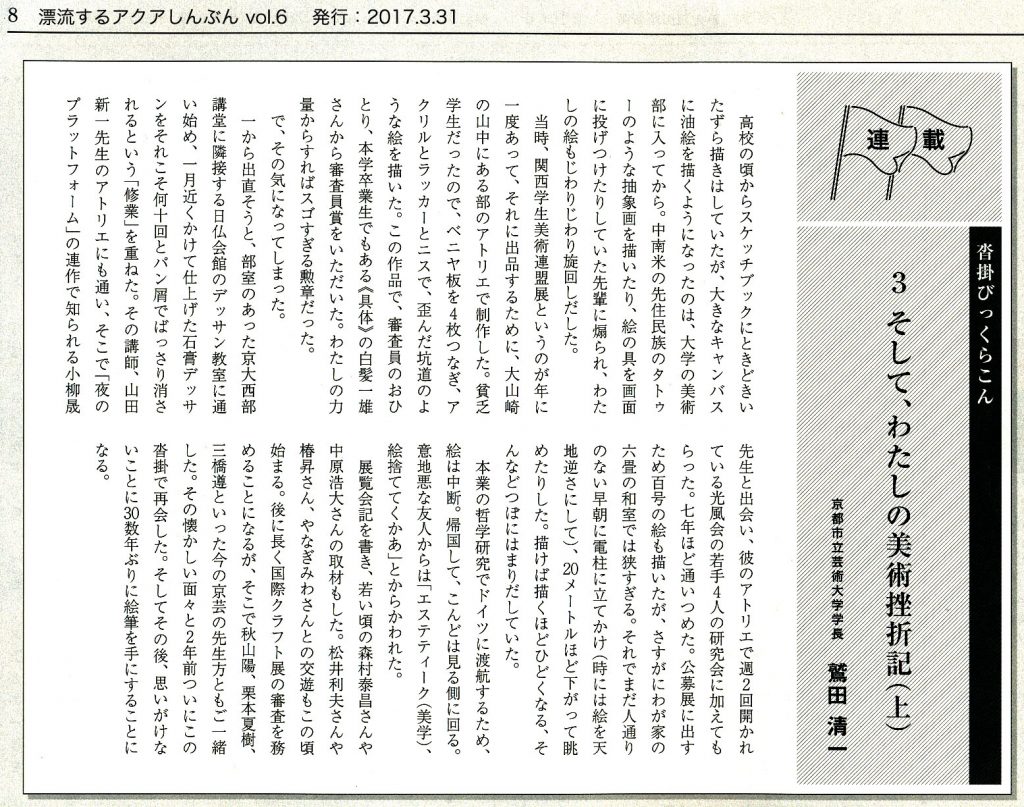 8 漂流するアクアしんぶん vol.6 発行：2017.3.31
連載
沓掛びっくらこん
3 そして、わたしの美術挫折記（上）
京都市立芸術大学学長 鷲田 清一
高校の頃からスケッチブックにときどきい
たずら描きはしていたが、大きなキャンバス
に油絵を描くようになったのは、大学の美術
部に入ってから。中南米の先住民族のタトゥ
ーのような抽象画を描いたり、絵の具を画面
に投げつけたりしていた先輩に煽られ、わた
しの絵もじわりじわり旋回しだした。
当時、関西学生美術連盟展というのが年に
一度あって、それに出品するために、大山崎
の山中にある部のアトリエで制作した。貧乏
学生だったので、ベニヤ板を4枚つなぎ、ア
クリルとラッカーとニスで、歪んだ坑道のよ
うな絵を描いた。この作品で、審査員のおひ
とり、本学卒業生でもある《具体》の白髪一雄
さんから審査員賞をいただいた。わたしの力
量からすればスゴすぎる勲章だった。
で、その気になってしまった。
一から出直そうと、部室のあった京大西部
講堂に隣接する日仏会館のデッサン教室に通
い始め、一月近くかけて仕上げた石膏デッサ
ンをそれこそ何十回とパン屑でばっさり消さ
れるという「修業」を重ねた。その講師、山田
新一先生のアトリエにも通い、そこで「夜の
プラットフォーム」の連作で知られる小柳晟
先生と出会い、彼のアトリエで週2回開かれ
ている光風会の若手4人の研究会に加えても
らった。七年ほど通いつめた。公募展に出す
ため百号の絵も描いたが、さすがにわが家の
六畳の和室では狭すぎる。それでまだ人通り
のない早朝に電柱に立てかけ（時には絵を天
地逆さにして）、20メートルほど下がって眺
めたりした。描けば描くほどひどくなる、そ
んなどつぼにはまりだしていた。
本業の哲学研究でドイツに渡航するため、
絵は中断。帰国して、こんどは見る側に回る。
意地悪な友人からは「エステティーク（美学）、
絵捨ててくかあ」とからかわれた。
展覧会記を書き、若い頃の森村泰昌さんや
中原浩大さんの取材もした。松井利夫さんや
椿昇さん、やなぎみわさんとの交遊もこの頃
始まる。後に長く国際クラフト展の審査を務
めることになるが、そこで秋山陽、栗本夏樹、
三橋遵といった今の京芸の先生方ともご一緒
した。その懐かしい面々と2年前ついにこの
沓掛で再会した。そしてその後、思いがけな
いことに30数年ぶりに絵筆を手にすることに
なる。